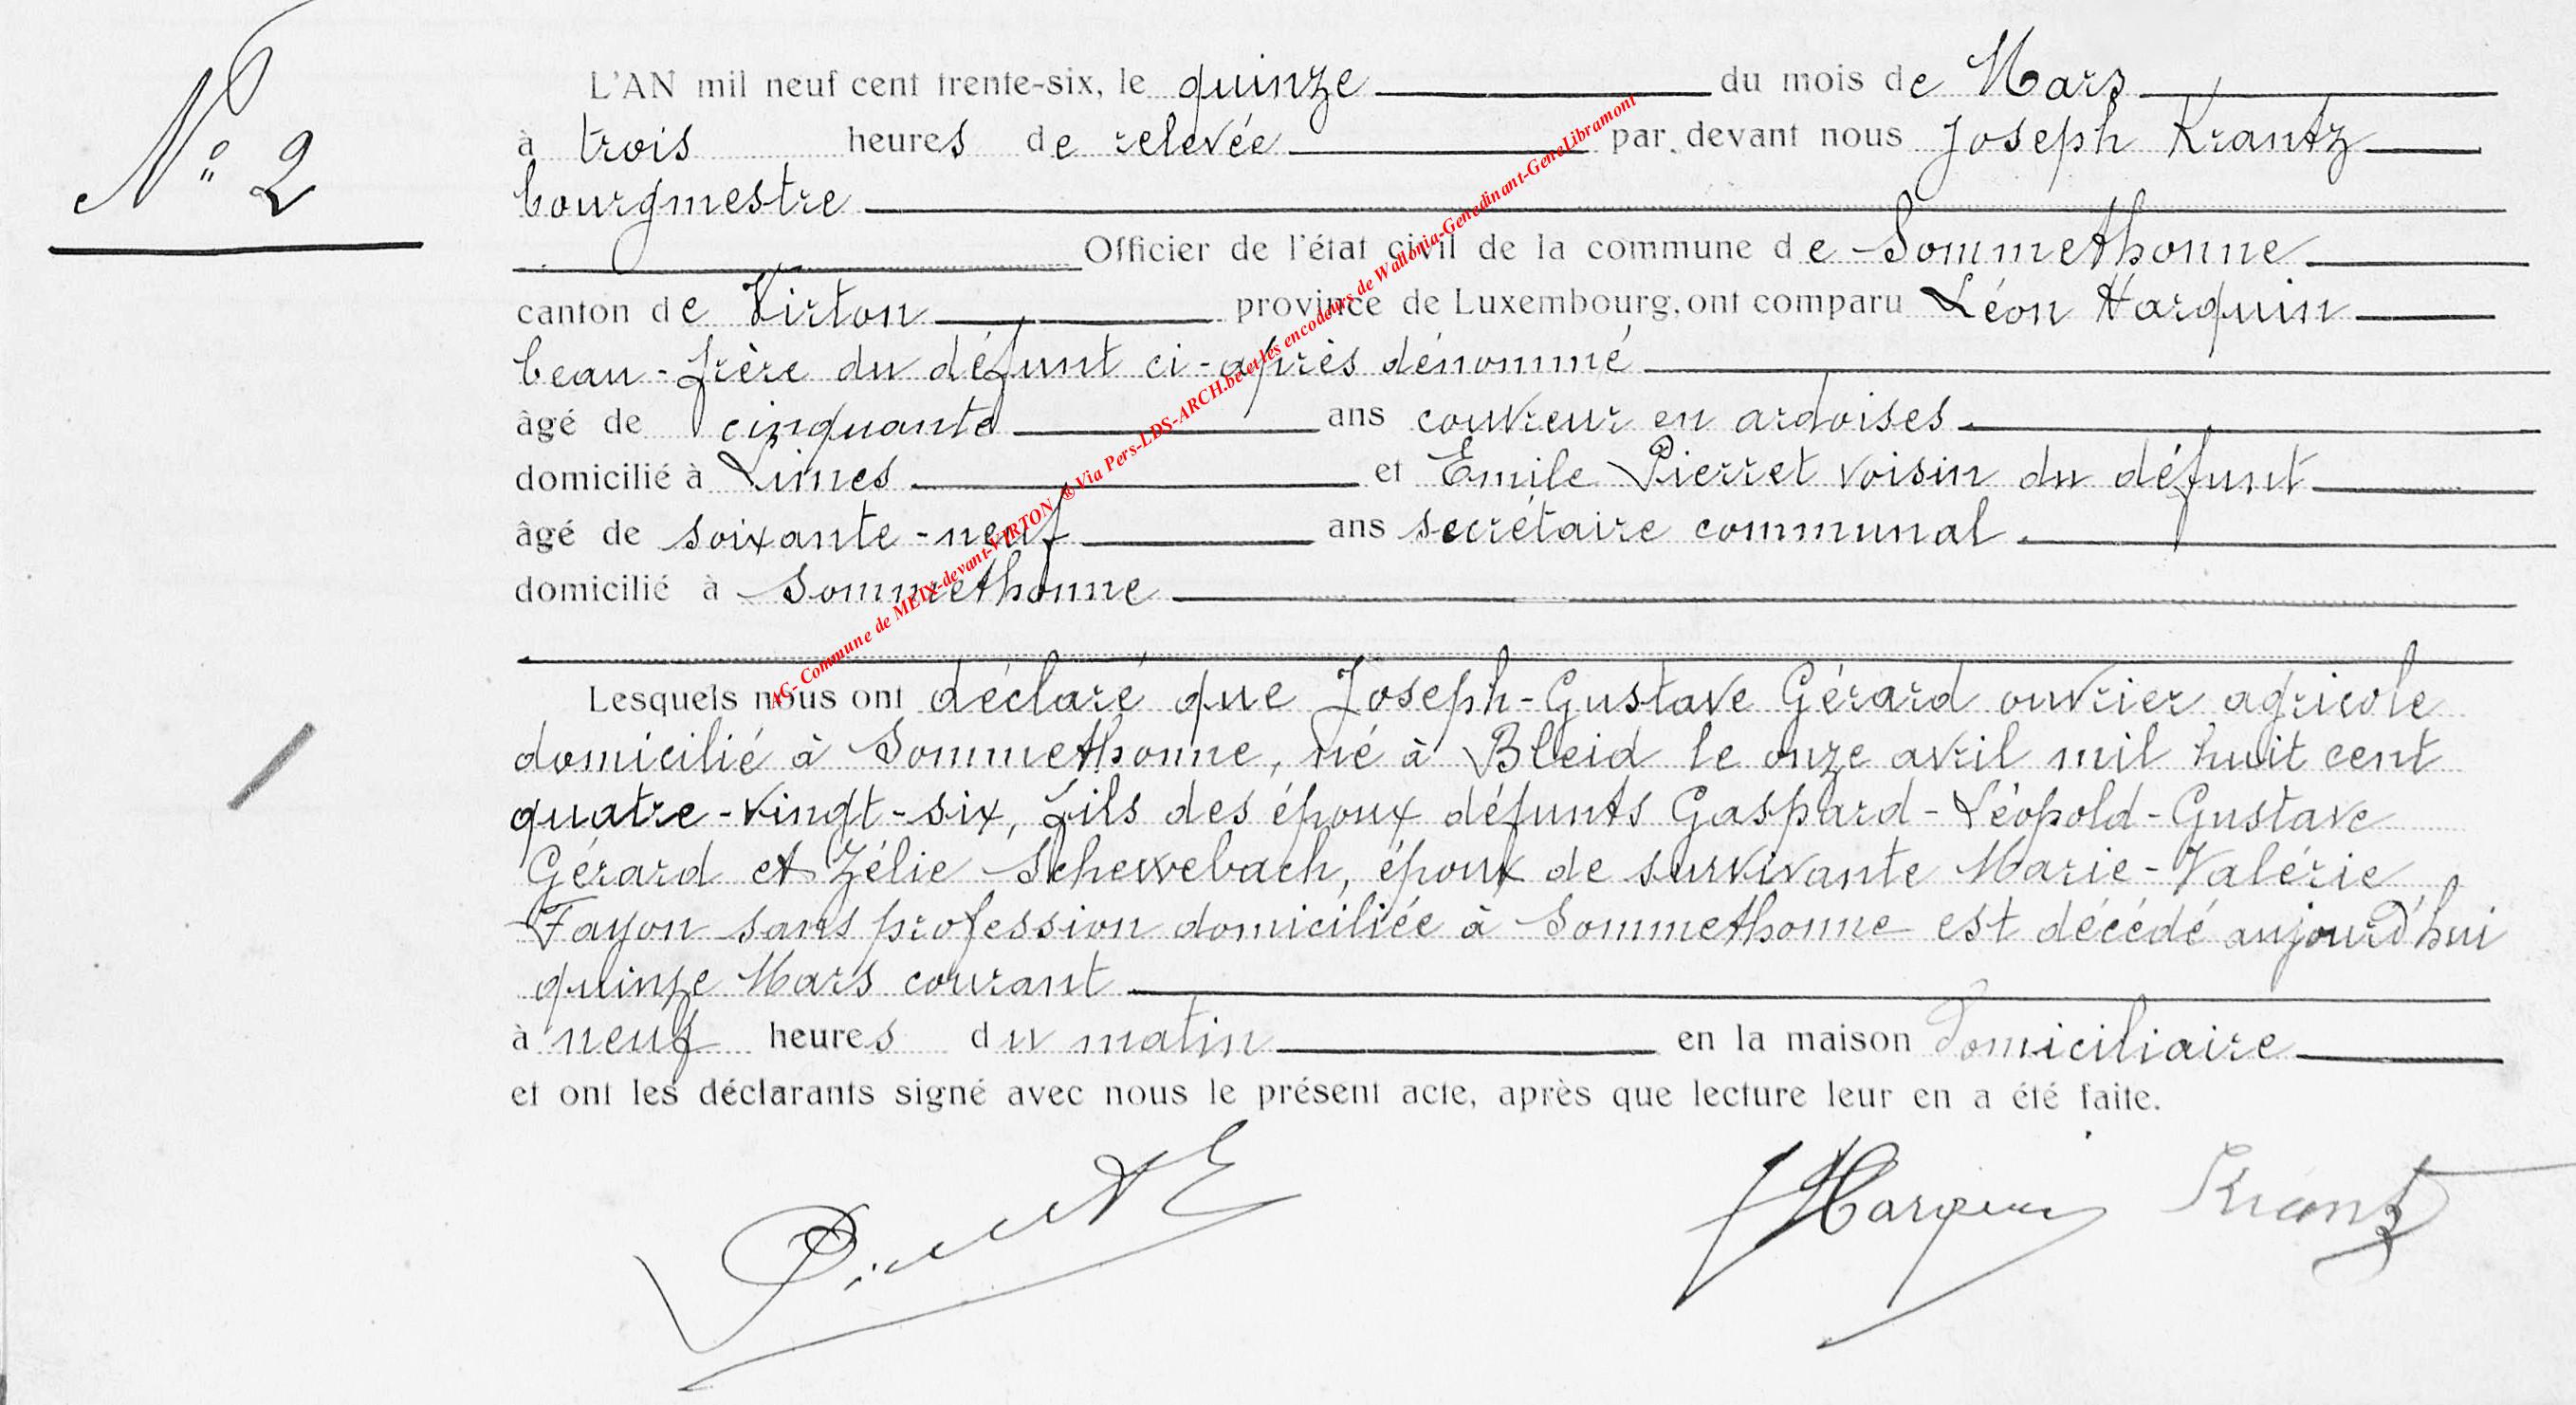 N° 2
L'AN mil neuf cent trente-six, le quinze du mois de Mars
à trois heures de relevée par devant nous Joseph Krantz
bourgmestre
Officier de l'état civil de la commune de Sommethonne
canton de Virton province de Luxembourg, ont comparu Léon Harquin
beau-frère du défunt ci-après dénommé
âgé de cinquante ans couvreur en ardoises
domicilié à Limes et Emile Pierret voisin du défunt
âgé de soixante-neuf ans secrétaire communal
domicilié à Sommethonne
Lesquels nous ont déclaré que Joseph-Gustave Gérard ouvrier agricole
domicilié à Sommethonne, né à Bleid le onze avril mil huit cent
quatre-vingt-six, fils des époux défunts Gaspard-Léopold-Gustave
Gérard et Zélie Schewebach, époux de survivante Marie-Valérie
Fayon sans profession domiciliée à Sommethonne est décédé aujourd'hui
quinze Mars courant
à neuf heures du matin en la maison domiciliaire
et ont les déclarants signé avec nous le présent acte, après que lecture leur en a été faite.
Harquin Krantz
AC- Commune de MEIX-devant-VIRTON ® Via Pers-LDS-ARCH.be et les encodeurs de Wallonia-Genedinant-GeneLibramont